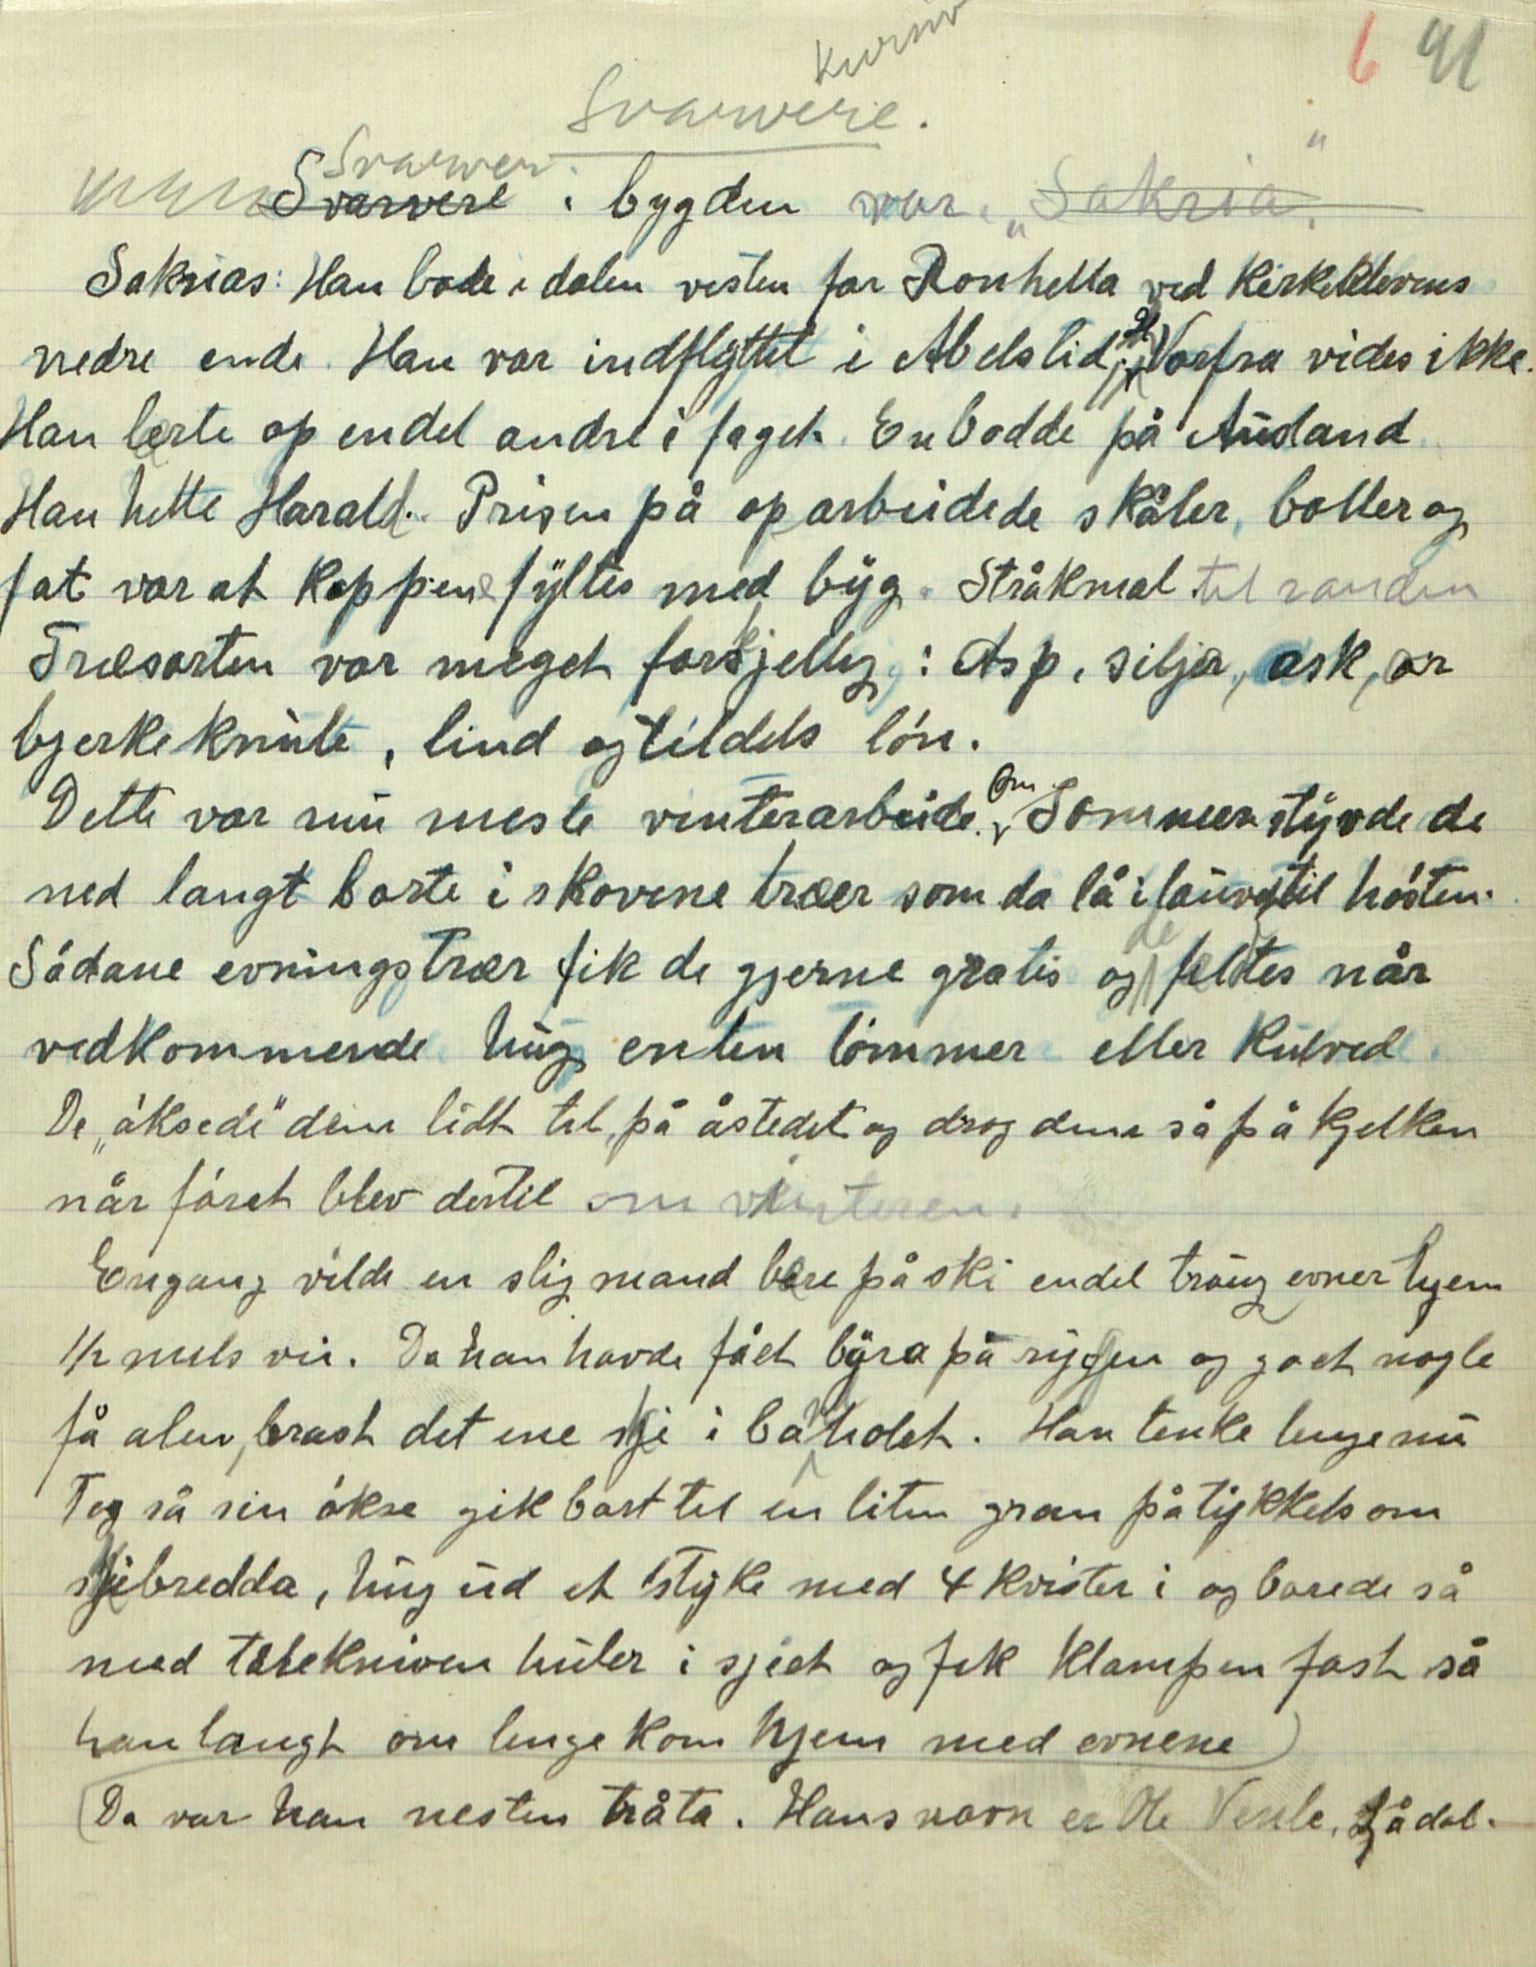 kursiv
6 41
Svarvere.
Svarver
Svarvere i bygden var „Sakria."
Sakrias: Han bode i dalen vesten for Ronhella ved Kirkeklevens
nedre ende. Han var indflyttet i Abelslid; Hvorfra vides ikke.
Han lerte op endel andre i faget. En bodde på Ausland
Han hette Harald. Prisen på oparbeidede skåler, boller og
fat var at koppene fyltes med byg. Stråkmal til randen
Træsorten var meget forskjellig: Asp, silja, ask, or
bjerkeknute, lind og tildels lön.
Dette var nu meste vinterarbeide. Om Sommeren styvde de
ned langt borte i skovene træer som da lå i lauvet til hösten.
Sådane evningstrær fik de gjerne gratis og de feltes når
vedkommende hug enten tömmer eller Kulved.
De „öksede" dem lidt til på åstedet og drog dem så på kjelken
når föret blev dertil om vinteren.
Engang vilde en slig mand bere på ski endel traugevner hjem
1/2 mils vei. Da han havde fået byra på ryggen og gået nogle
få alen, brast det ene ski i båndholet. Han tenke lenge nu
Tog så sin ökse gik bort til en liten gran på tykkels om
skibredda, hug ud et styke med 4 kvister i og borede så
med tolekniven huler i sjiet og fek klampen fast så
han langt om lenge kom hjem med evnene
Da var han nesten tråta. Hans navn er Ole Venle, Ljådal.